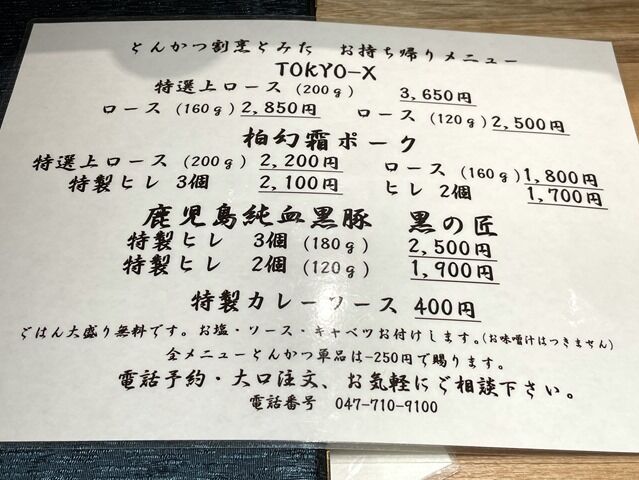 とんかつ割烹とみた お持ち帰りメニュー
TOKYO-X
特選上ロース (200g) 3,650円
ロース (160g) 2,850円 ロース (120g) 2,500円
柏幻霜ポーク
特選上ロース (200g) 2,200円 ロース (160g) 1,800円
特製ヒレ 3個 2,100円 ヒレ 2個 1,700円
鹿児島純血黒豚 黒の匠
特製ヒレ 3個 (180g) 2,500円
特製ヒレ 2個 (120g) 1,900円
特製カレーソース 400円
ごはん大盛り無料です。お塩・ソース・キャベツお付けします。(お味噌汁はつきません)
全メニューとんかつ単品は-250円で賜ります。
電話予約・大口注文、お気軽にご相談下さい。
電話番号 047-710-9100